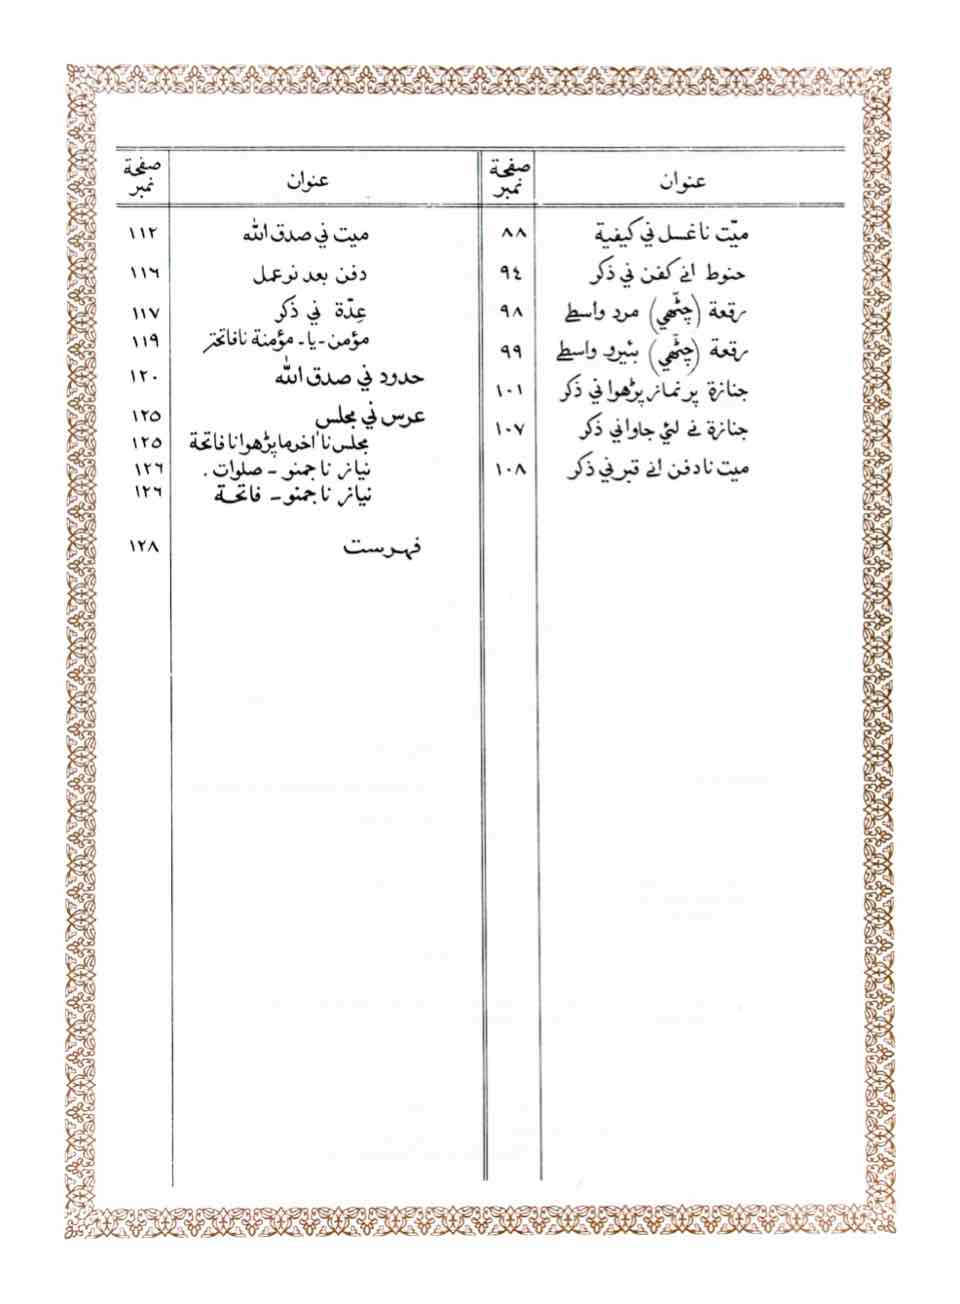 عنوان صفحة نمبر
ميّت نا غسل ني كيفية ٨٨
حنوط انے كفن ني ذكر ٩٤
رقعة (چٹّهي) مرد واسطے ٩٨
رقعة (چٹّهي) بئيرو واسطے ٩٩
جنازة پر نماز پڑهوا ني ذكر ١٠١
جنازة نے لئي جاوا ني ذكر ١٠٧
ميت نا دفن انے قبر ني ذكر ١٠٨
عنوان صفحة نمبر
ميت ني صدق الله ١١٢
دفن بعد نو عمل ١١٦
عِدّة ني ذكر ١١٧
مؤمن - يا - مؤمنة نا فاتحتر ١١٩
حدود ني صدق الله ١٢٠
عرس ني مجلس ١٢٥
مجلس نا اٰخر ما پڑهوا نا فاتحة ١٢٥
نياز نا جمنو - صلوات . ١٢٦
نياز نا جمنو - فاتحة ١٢٦
فهرست ١٢٨